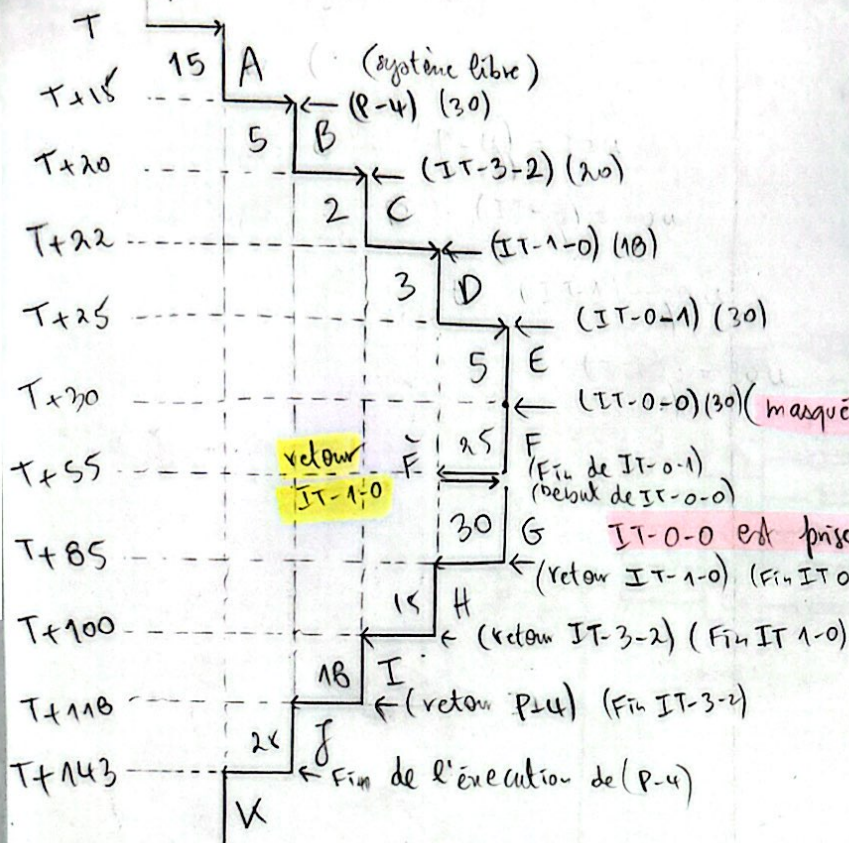 T
15 A (système libre)
T+15 (P-4) (30)
5 B
T+20 (IT-3-2) (20)
2 C
T+22 (IT-1-0) (18)
3 D
T+25 (IT-0-1) (30)
5 E
T+30 (IT-0-0) (30) (masqué
retour 25 F
T+55 F (Fin de IT-0-1)
IT-1-0 (Début de IT-0-0)
30 G IT-0-0 est prise
T+85 (retour IT-1-0) (Fin IT 0
15 H
T+100 (retour IT-3-2) (Fin IT 1-0)
18 I
T+118 (retour P-4) (Fin IT-3-2)
25 J
T+143 Fin de l'éxecution de (P-4)
K